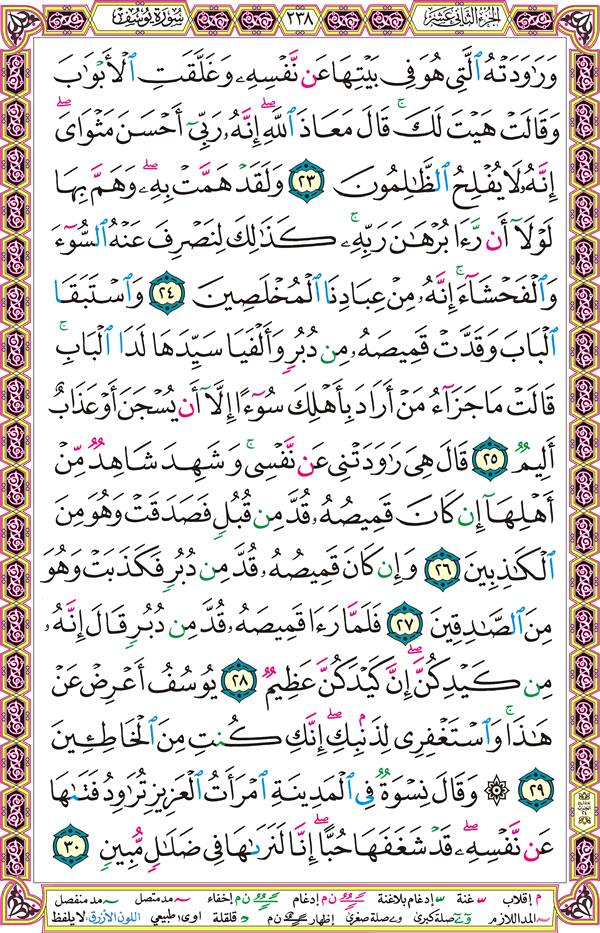 الجزء الثاني عشر
٢٣٨
سورة يوسف
وَرَٰوَدَتْهُ ٱلَّتِي هُوَ فِي بَيْتِهَا عَن نَّفْسِهِۦ وَغَلَّقَتِ ٱلْأَبْوَٰبَ
وَقَالَتْ هَيْتَ لَكَ ۚ قَالَ مَعَاذَ ٱللَّهِ ۖ إِنَّهُۥ رَبِّيٓ أَحْسَنَ مَثْوَايَ ۖ
إِنَّهُۥ لَا يُفْلِحُ ٱلظَّٰلِمُونَ ٢٣ وَلَقَدْ هَمَّتْ بِهِۦ ۖ وَهَمَّ بِهَا
لَوْلَآ أَن رَّءَا بُرْهَٰنَ رَبِّهِۦ ۚ كَذَٰلِكَ لِنَصْرِفَ عَنْهُ ٱلسُّوٓءَ
وَٱلْفَحْشَآءَ ۚ إِنَّهُۥ مِنْ عِبَادِنَا ٱلْمُخْلَصِينَ ٢٤ وَٱسْتَبَقَا
ٱلْبَابَ وَقَدَّتْ قَمِيصَهُۥ مِن دُبُرٍ وَأَلْفَيَا سَيِّدَهَا لَدَا ٱلْبَابِ ۚ
قَالَتْ مَا جَزَآءُ مَنْ أَرَادَ بِأَهْلِكَ سُوٓءًا إِلَّآ أَن يُسْجَنَ أَوْ عَذَابٌ
أَلِيمٌ ٢٥ قَالَ هِيَ رَٰوَدَتْنِي عَن نَّفْسِي ۚ وَشَهِدَ شَاهِدٌ مِّنْ
أَهْلِهَآ إِن كَانَ قَمِيصُهُۥ قُدَّ مِن قُبُلٍ فَصَدَقَتْ وَهُوَ مِنَ
ٱلْكَٰذِبِينَ ٢٦ وَإِن كَانَ قَمِيصُهُۥ قُدَّ مِن دُبُرٍ فَكَذَبَتْ وَهُوَ
مِنَ ٱلصَّٰدِقِينَ ٢٧ فَلَمَّا رَءَا قَمِيصَهُۥ قُدَّ مِن دُبُرٍ قَالَ إِنَّهُۥ
مِن كَيْدِكُنَّ ۖ إِنَّ كَيْدَكُنَّ عَظِيمٌ ٢٨ يُوسُفُ أَعْرِضْ عَنْ
هَٰذَا ۚ وَٱسْتَغْفِرِي لِذَنۢبِكِ ۖ إِنَّكِ كُنتِ مِنَ ٱلْخَاطِـِٔينَ
٢٩ ۞ وَقَالَ نِسْوَةٌ فِي ٱلْمَدِينَةِ ٱمْرَأَتُ ٱلْعَزِيزِ تُرَٰوِدُ فَتَىٰهَا
عَن نَّفْسِهِۦ ۖ قَدْ شَغَفَهَا حُبًّا ۖ إِنَّا لَنَرَىٰهَا فِي ضَلَٰلٍ مُّبِينٍ ٣٠
م إقلاب غنة إدغام بلاغنة ن م إدغام ن م إخفاء مد متصل مد منفصل
المد اللازم صلة كبرى صلة صغرى إظهار ن م قلقلة اوى طبيعي اللون الأزرق لا يلفظ